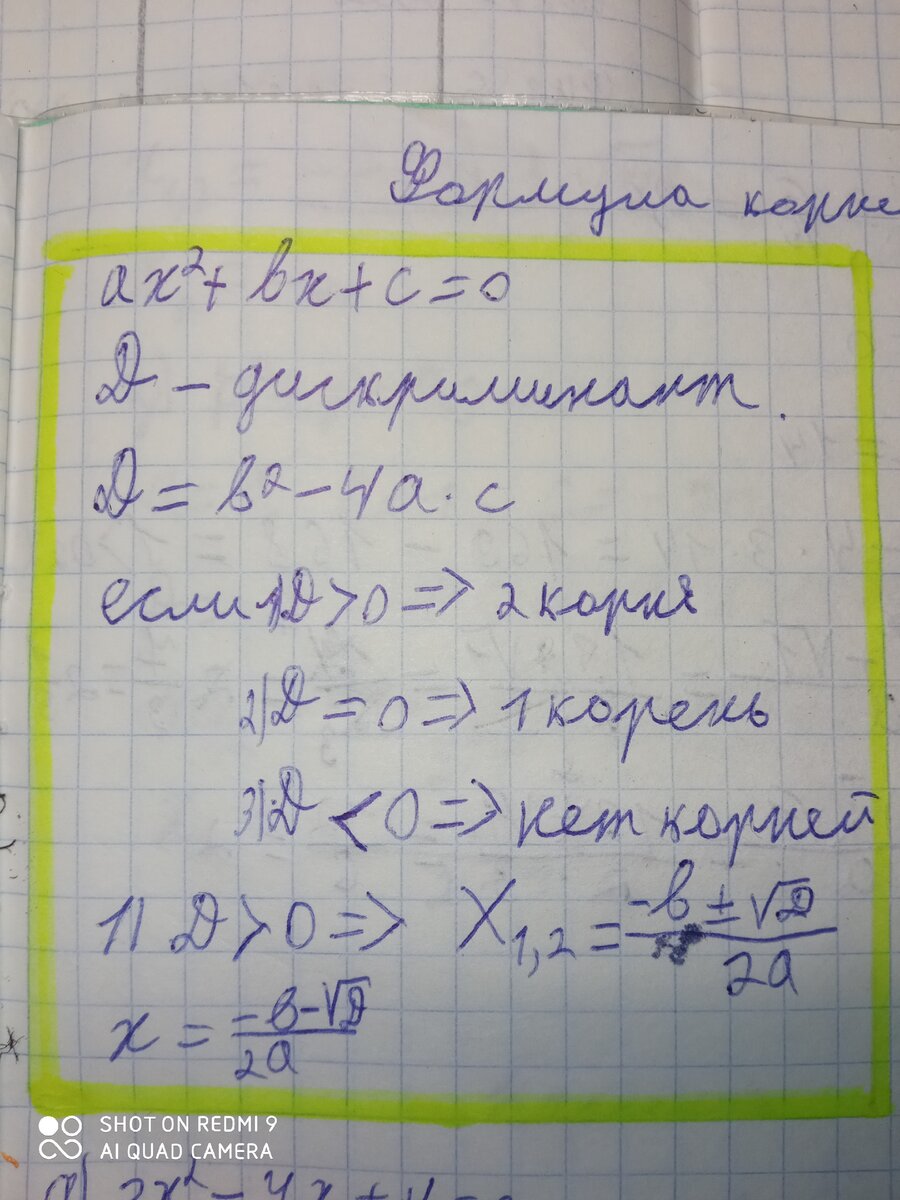 Формула корне
ax² + bx + c = 0
D – дискриминант.
D = b² – 4a · c
если 1) D > 0 => 2 корня
2) D = 0 => 1 корень
3) D < 0 => нет корней
1) D > 0 => X₁,₂ = (-b ± √D) / 2a
x = (-b - √D) / 2a
SHOT ON REDMI 9
AI QUAD CAMERA